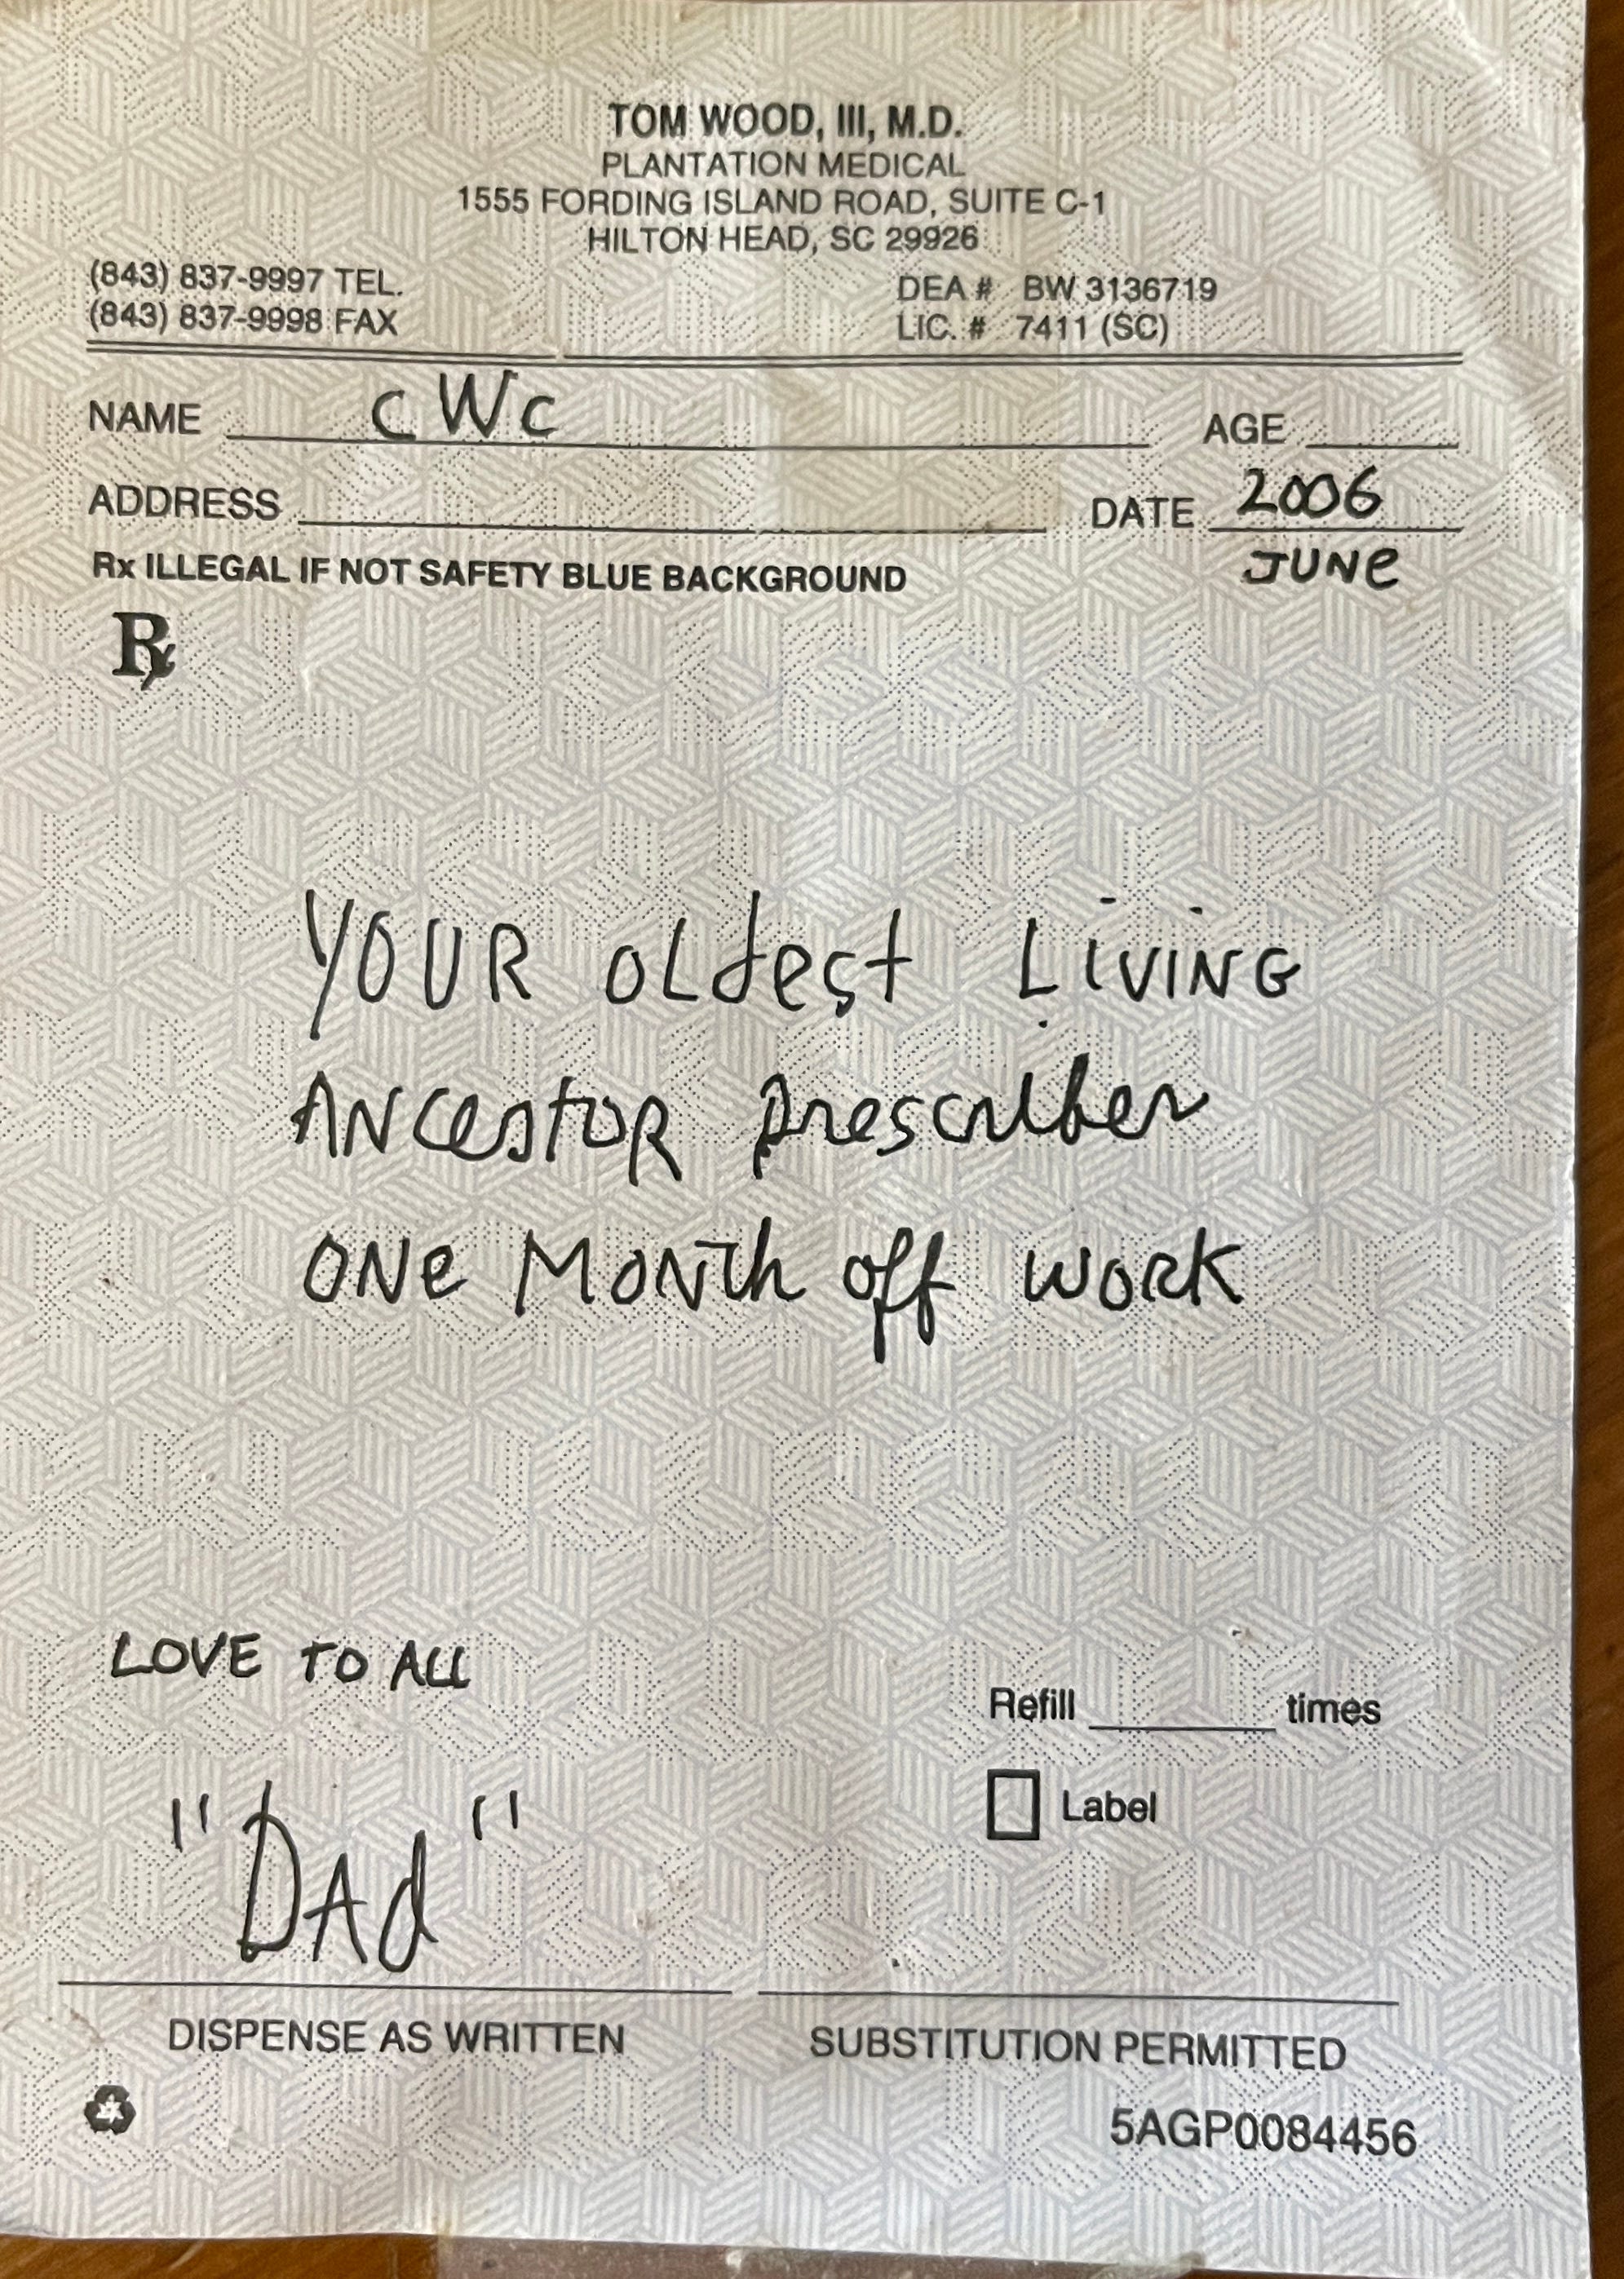 TOM WOOD, III, M.D.
PLANTATION MEDICAL
1555 FORDING ISLAND ROAD, SUITE C-1
HILTON HEAD, SC 29926
(843) 837-9997 TEL.
(843) 837-9998 FAX
DEA # BW 3136719
LIC. # 7411 (SC)
NAME cWc AGE
ADDRESS DATE 2006
JUNe
Rx ILLEGAL IF NOT SAFETY BLUE BACKGROUND
Rx
YOUR oLdest LiVING
ANcestOR prescriber
ONe MoNTh off WORK
LOVE TO ALL
Refill times
Label
"DAd"
DISPENSE AS WRITTEN SUBSTITUTION PERMITTED
5AGP0084456